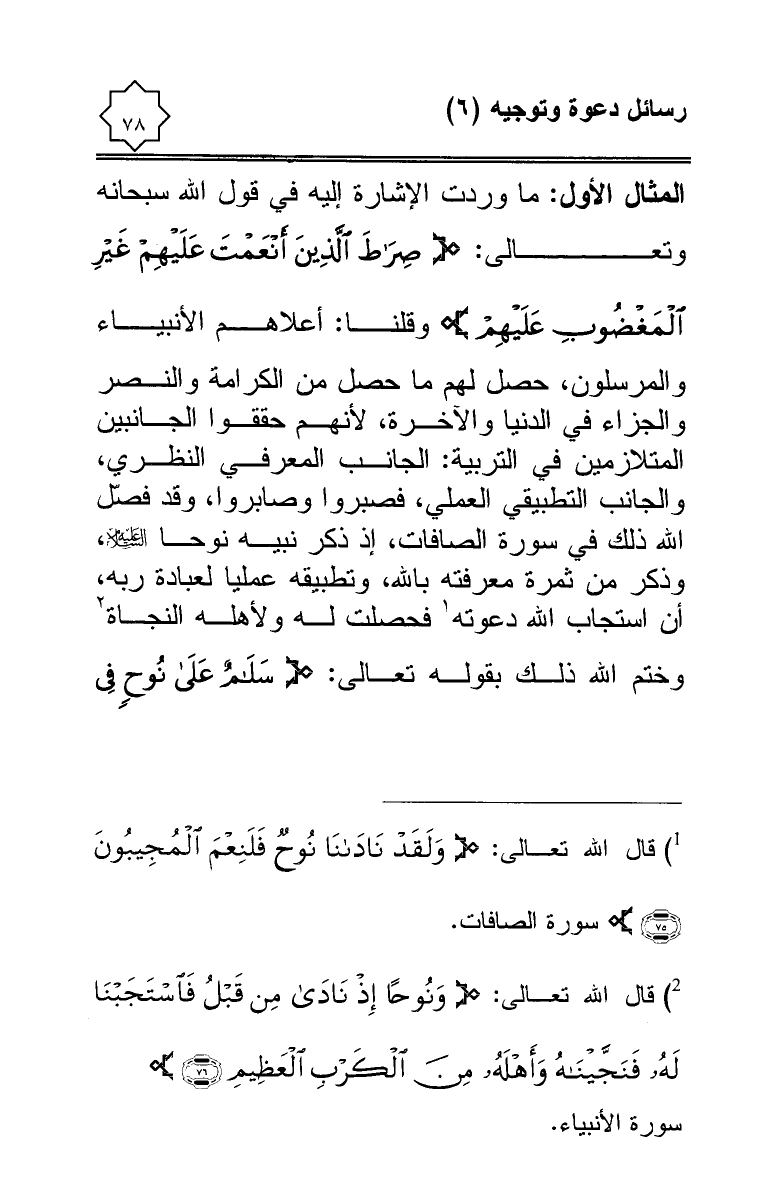 رسائل دعوة وتوجيه (٦)
٧٨
المثال الأول: ما وردت الإشارة إليه في قول الله سبحانه
وتعالى: ﴿ صِرَٰطَ ٱلَّذِينَ أَنْعَمْتَ عَلَيْهِمْ غَيْرِ
ٱلْمَغْضُوبِ عَلَيْهِمْ ﴾ وقلنا: أعلاهم الأنبياء
والمرسلون، حصل لهم ما حصل من الكرامة والنصر
والجزاء في الدنيا والآخرة، لأنهم حققوا الجانبين
المتلازمين في التربية: الجانب المعرفي النظري،
والجانب التطبيقي العملي، فصبروا وصابروا، وقد فصّل
الله ذلك في سورة الصافات، إذ ذكر نبيه نوحا عليه السلام،
وذكر من ثمرة معرفته بالله، وتطبيقه عمليا لعبادة ربه،
أن استجاب الله دعوته١ فحصلت له ولأهله النجاة٢
وختم الله ذلك بقوله تعالى: ﴿ سَلَٰمٌ عَلَىٰ نُوحٍ فِى
1) قال الله تعالى: ﴿ وَلَقَدْ نَادَىٰنَا نُوحٌ فَلَنِعْمَ ٱلْمُجِيبُونَ
٧٥ ﴾ سورة الصافات.
2) قال الله تعالى: ﴿ وَنُوحًا إِذْ نَادَىٰ مِن قَبْلُ فَٱسْتَجَبْنَا
لَهُۥ فَنَجَّيْنَٰهُ وَأَهْلَهُۥ مِنَ ٱلْكَرْبِ ٱلْعَظِيمِ ٧٦ ﴾
سورة الأنبياء.